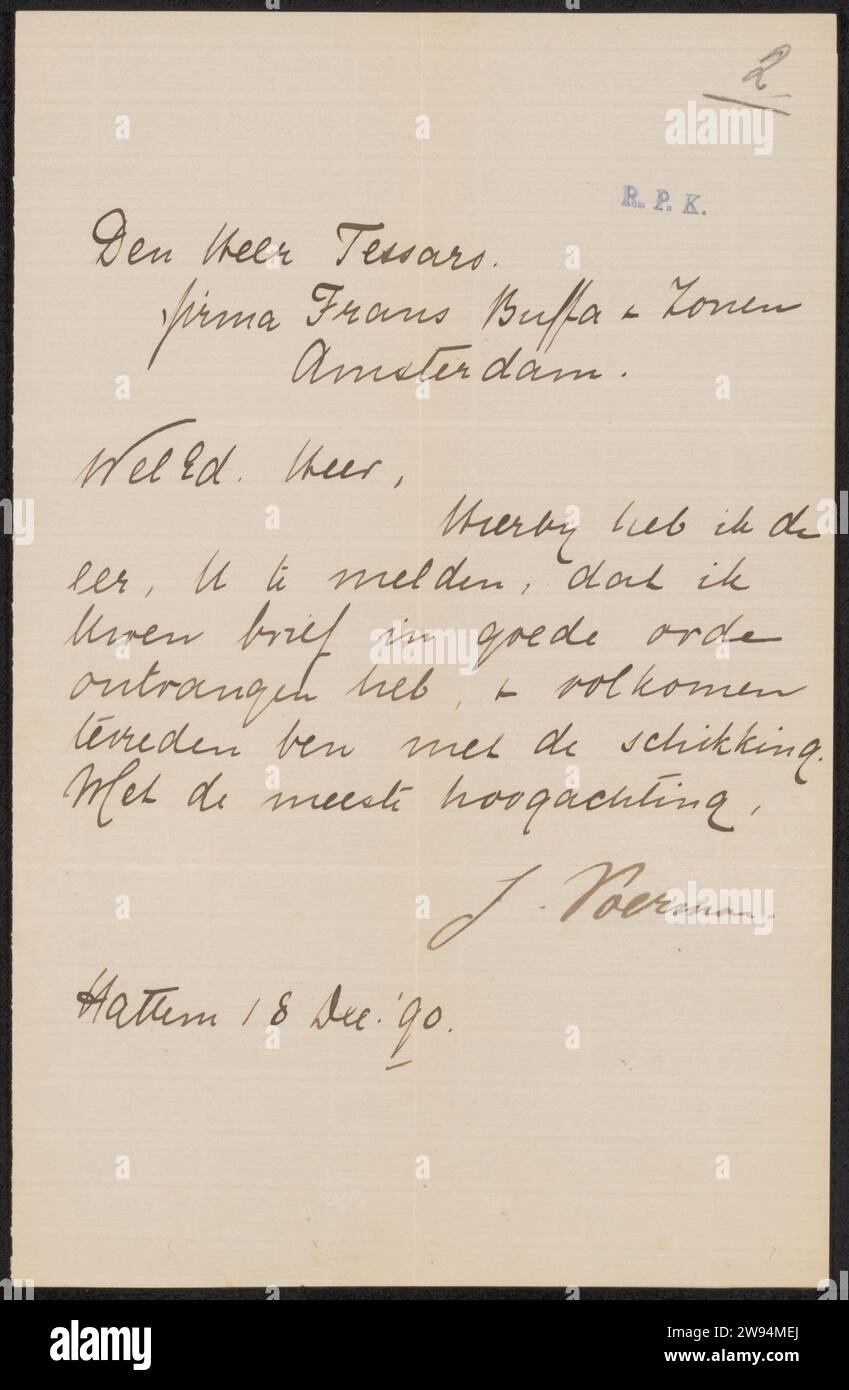 2
R. P. K.
Den Heer Tessaro.
firma Frans Buffa & Zonen
Amsterdam.
WelEd. Heer,
Hierby heb ik de
eer, U te melden, dat ik
Uwen brief in goede orde
ontvangen heb, & volkomen
tevreden ben met de schikking.
Met de meeste hoogachting,
J. Voerman
Hattem 18 Dec. '90.
alamy
Image ID: 2W94MEJ
www.alamy.com